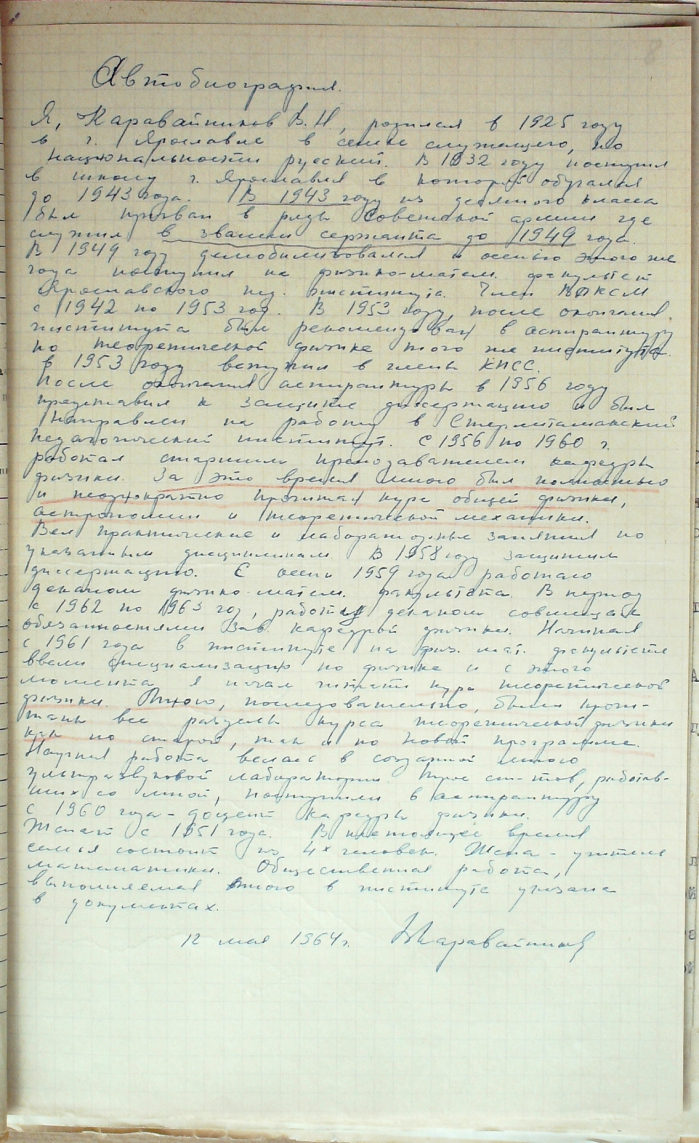 8
Автобиография.
Я, Каравайников В.Н, родился в 1925 году
в г. Ярославле в семье служащего, по
национальности русский. В 1932 году поступил
в школу г. Ярославля в которой обучался
до 1943 года. В 1943 году из десятого класса
был призван в ряды Советской армии где
служил в звании сержанта до 1949 года.
В 1949 году демобилизовался и осенью этого же
года поступил на физико-матем. факультет
Ярославского пед. института. Член ВЛКСМ
с 1942 по 1953 год. В 1953 году, после окончания
института был рекомендован в аспирантуру
по теоретической физике того же института.
В 1953 году вступил в члены КПСС.
После окончания аспирантуры в 1956 году
представил к защите диссертацию и был
направлен на работу в Стерлитамакский
педагогический институт. С 1956 по 1960 г.
работал старшим преподавателем кафедры
физики. За это время мною был полностью
и неоднократно прочитан курс общей физики,
астрономии и теоретической механики.
Вел практические и лабораторные занятия по
указанным дисциплинам. В 1958 году защитил
диссертацию. С осени 1959 года работаю
деканом физико-матем. факультета. В период
с 1962 по 1963 год, работу деканом совмещал
обязанностями зав. кафедрой физики. Начиная
с 1961 года в институте на физ. мат. факультете
ввели специализацию по физике и с этого
момента я начал читать курс теоретической
физики. Мною, последовательно, были прочи-
таны все разделы курса теоретической физики
как по старой, так и по новой программе.
Научная работа велась в созданной мною
ультразвуковой лаборатории. Трое ст-тов, работав-
ших со мной, поступили в аспирантуру
С 1960 года - доцент кафедры физики.
Женат с 1951 года. В настоящее время
семья состоит из 4х человек. Жена - учитель
математики. Общественная работа,
выполняемая мною в институте указана
в документах.
12 мая 1964 г. Каравайников